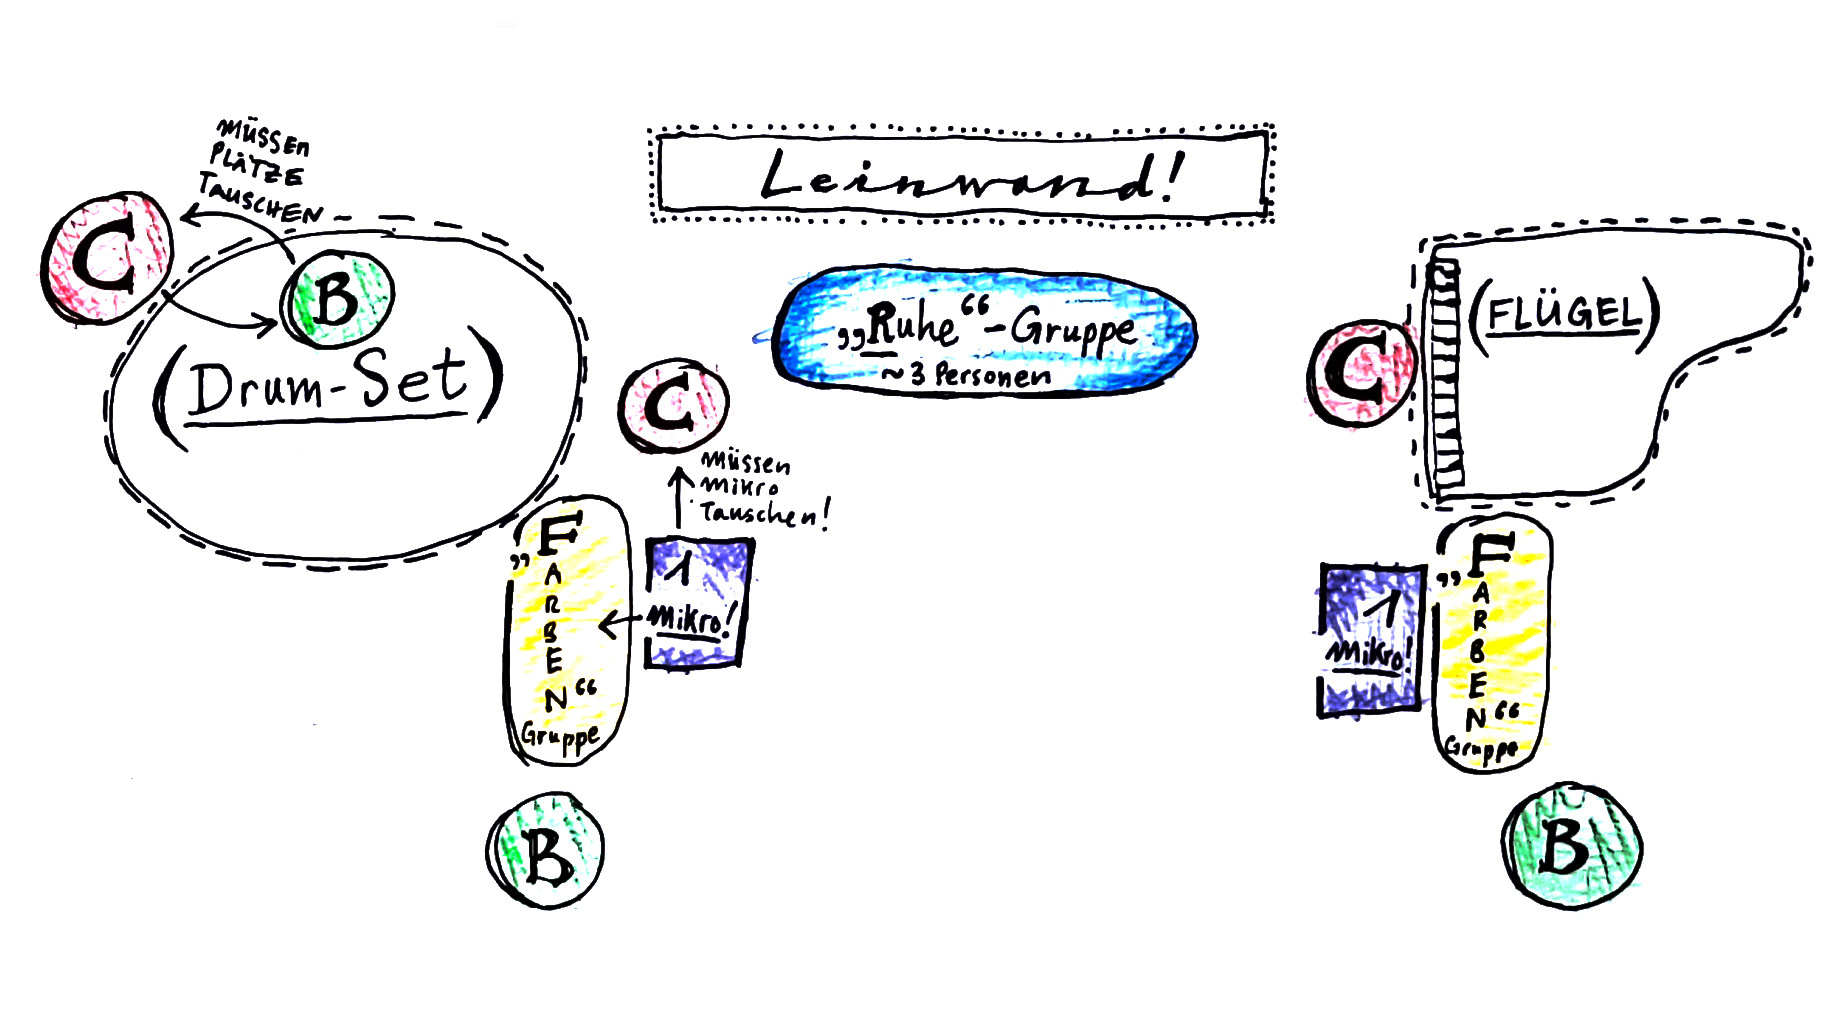 MÜSSEN
PLÄTZE
TAUSCHEN
C
B
(Drum-Set)
Leinwand!
„Ruhe“-Gruppe
~3 Personen
C
(FLÜGEL)
C
müssen
mikro
Tauschen!
„FARBEN“
Gruppe
1
Mikro!
B
1
Mikro!
„FARBEN“
Gruppe
B